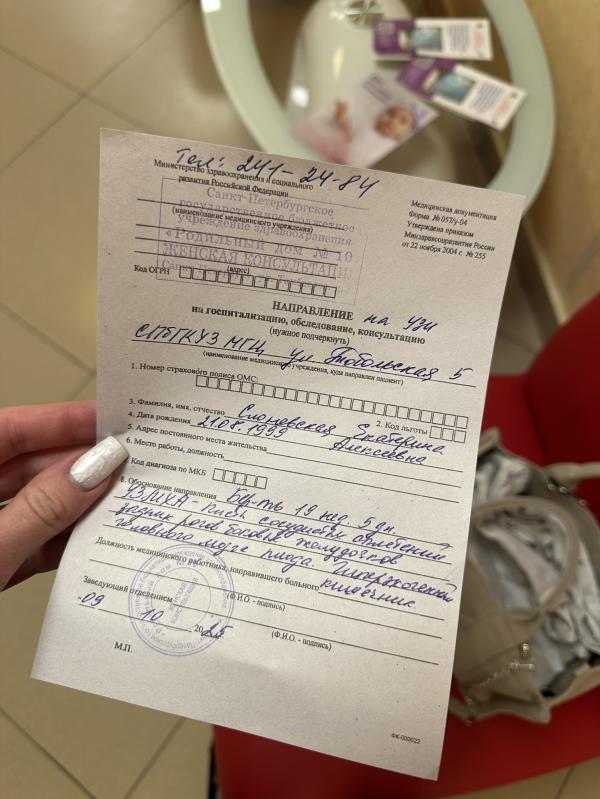 Тел: 241-24-84
Министерство здравоохранения и социального
развития Российской Федерации
Медицинская документация
Форма № 057/у-04
Утверждена приказом
Минздравсоцразвития России
от 22 ноября 2004 г. № 255
Санкт-Петербургское
государственное бюджетное
(наименование медицинского учреждения)
учреждение здравоохранения
«РОДИЛЬНЫЙ ДОМ № 10
ЖЕНСКАЯ КОНСУЛЬТАЦИ
(адрес)
Код ОГРН
НАПРАВЛЕНИЕ на УЗИ
на госпитализацию, обследование, консультацию
(нужное подчеркнуть)
СПбГКУЗ МГЦ ул. Тобольская, 5
(наименование медицинского учреждения, куда направлен пациент)
1. Номер страхового полиса ОМС:
2. Код льготы
3. Фамилия, имя, отчество Екатерина
Алексеевна
4. Дата рождения 21.08.1999
5. Адрес постоянного места жительства
6. Место работы, должность
Код диагноза по МКБ
8. Обоснование направления бер-ть 19 нед 5 дн.
сосудистых сплетений
задних рогов боковых желудочков
головного мозга плода. Гиперэхогенный
кишечник
Должность медицинского работника, направившего больного
(Ф.И.О. - подпись)
Заведующий отделением
(Ф.И.О. - подпись)
09 10 2025
М.П.
ФК-000022